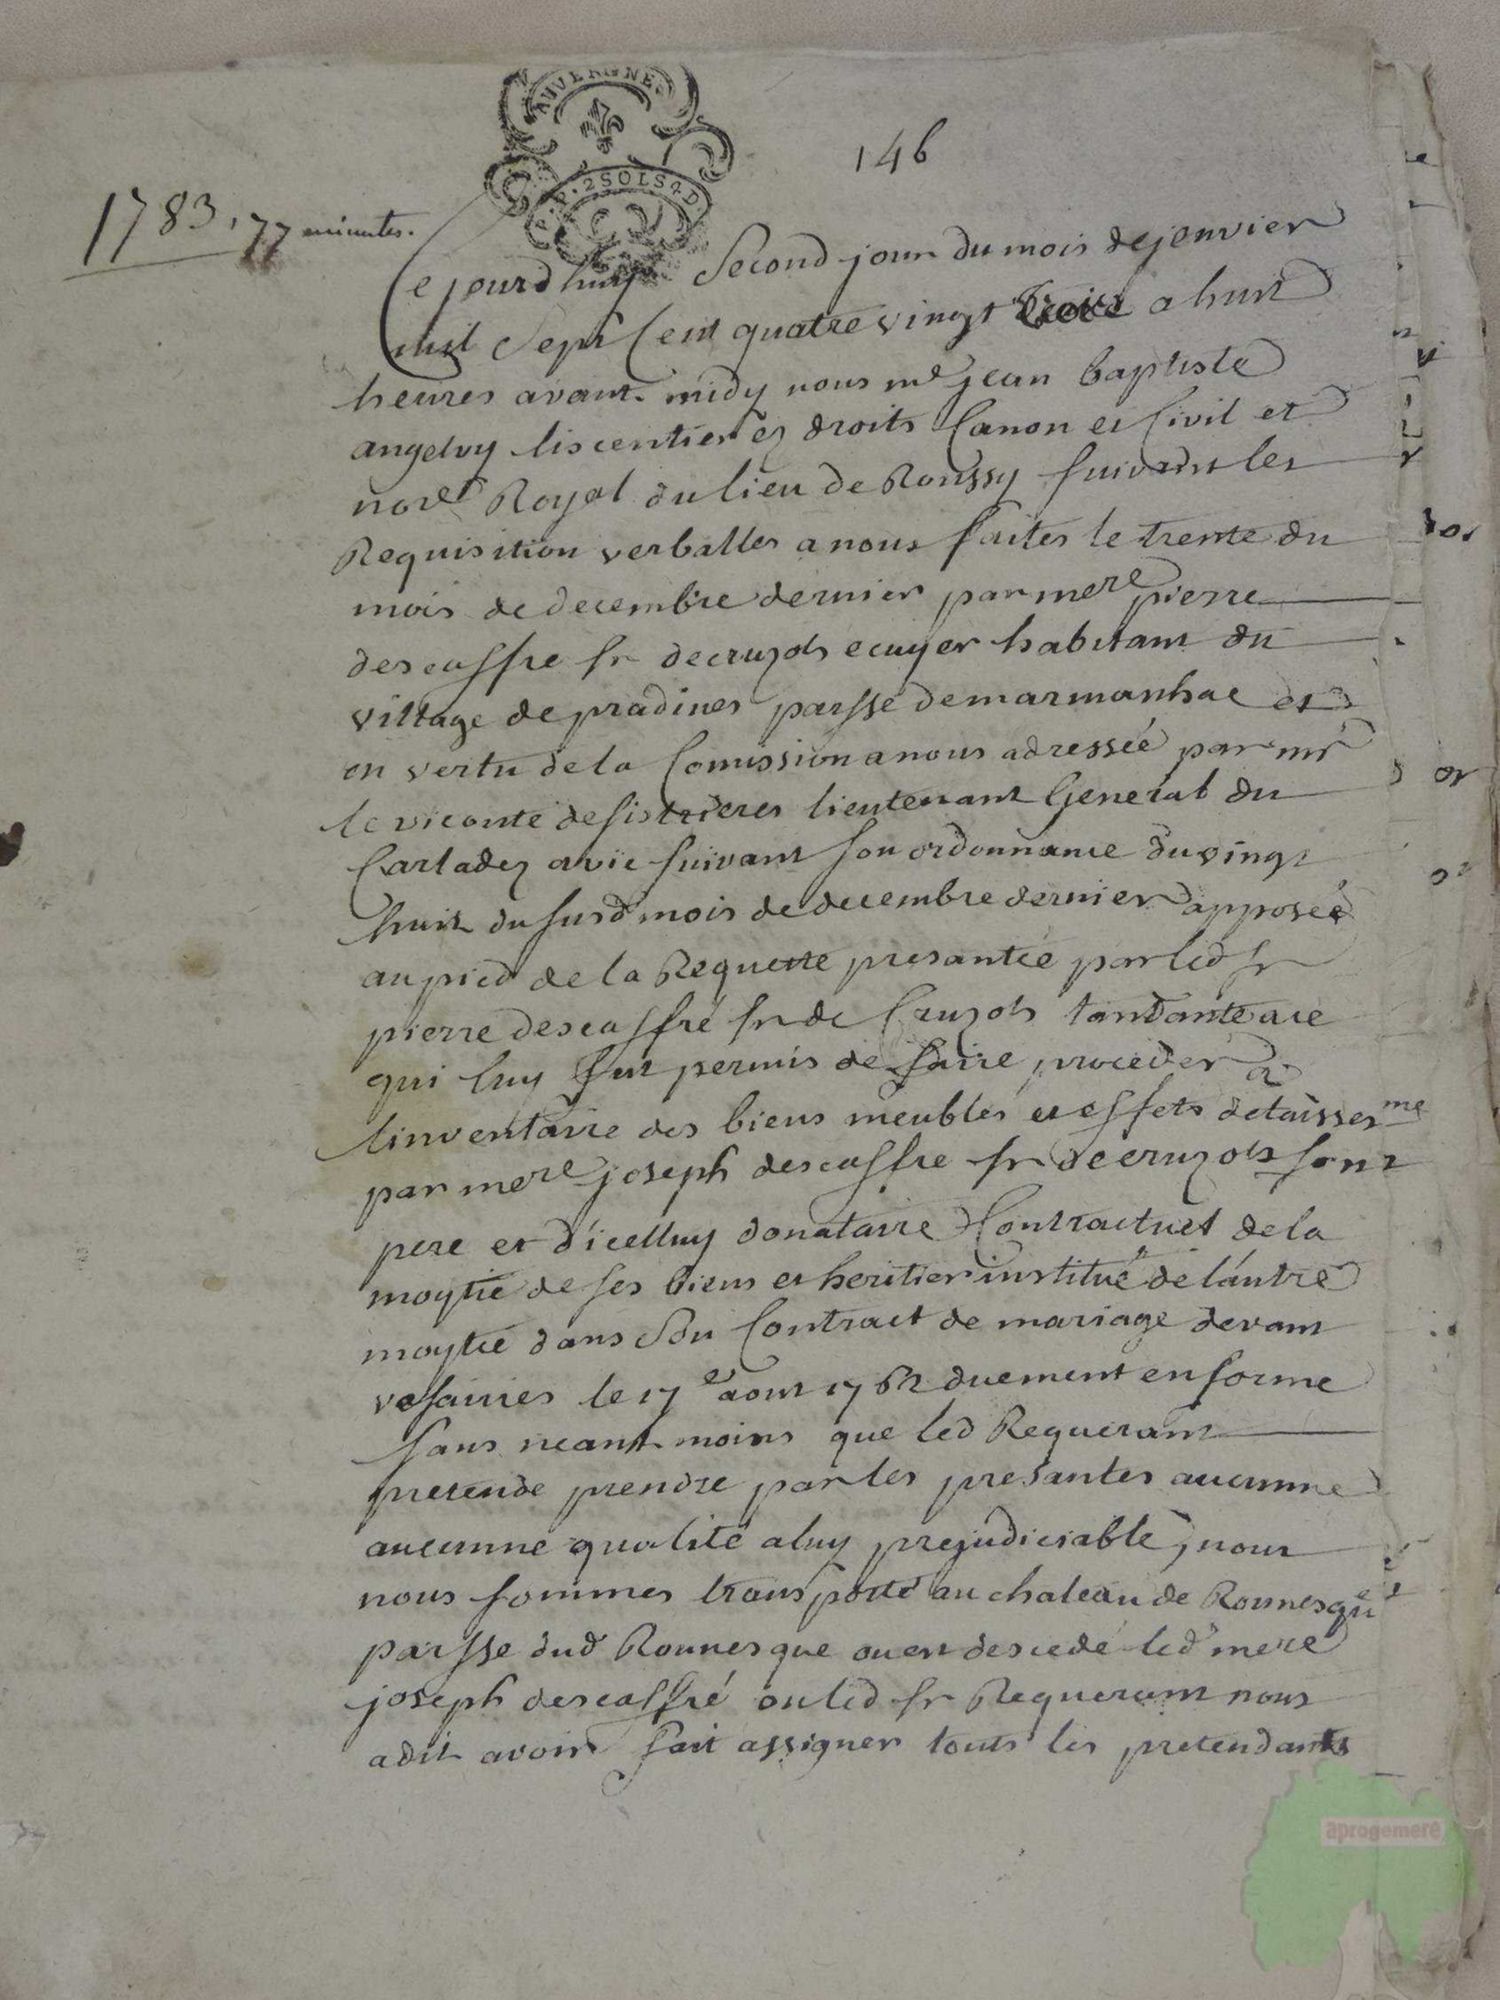 AUVERGNE
2 SOLS 4 D.
146
1783, 77 minutes.
Ce jourd huy second jour du mois de jenvier
mil sept cent quatre vingt trois a huit
heures avant midy nous me jean baptiste
angelvy liscentier ez droits canon et civil et
nore Royal du lieu de Roussy suivant les
Requisition verballes a nous faites le trente du
mois de decembre dernier par mere pierre
descaffre sr de cruzols ecuyer habitant du
village de pradines parsse de marmanhac et
en vertu de la Comission a nous adressée par mr
le viconte de sistrieres lieutenant General du
Carladez a vic suivant son ordonnance du vingt
huit du susd mois de decembre dernier apposée
au pied de la Requette presantée par led sr
pierre descaffré sr de Cruzols tandante a ce
qui luy fut permis de faire proceder a
linventaire des biens meubles et effets delaisses
par mere joseph descaffre sr de cruzols son
pere et d'icelluy donataire Contractuel de la
moytié de ses biens et heritier institué de lautre
moytié dans son Contract de mariage devant
le 17e aout 1762 duement en forme
sans neant moins que led Requerant
pretende prendre par les presantes aucunne
aucunne qualité a luy prejudiciable, nous
nous sommes transporté au chateau de Rounesque
parsse dud Rounesque ou est descedé led mere
joseph descaffré ou led sr Requerant nous
a dit avoir fait assigner touts les pretendants
aprogemere